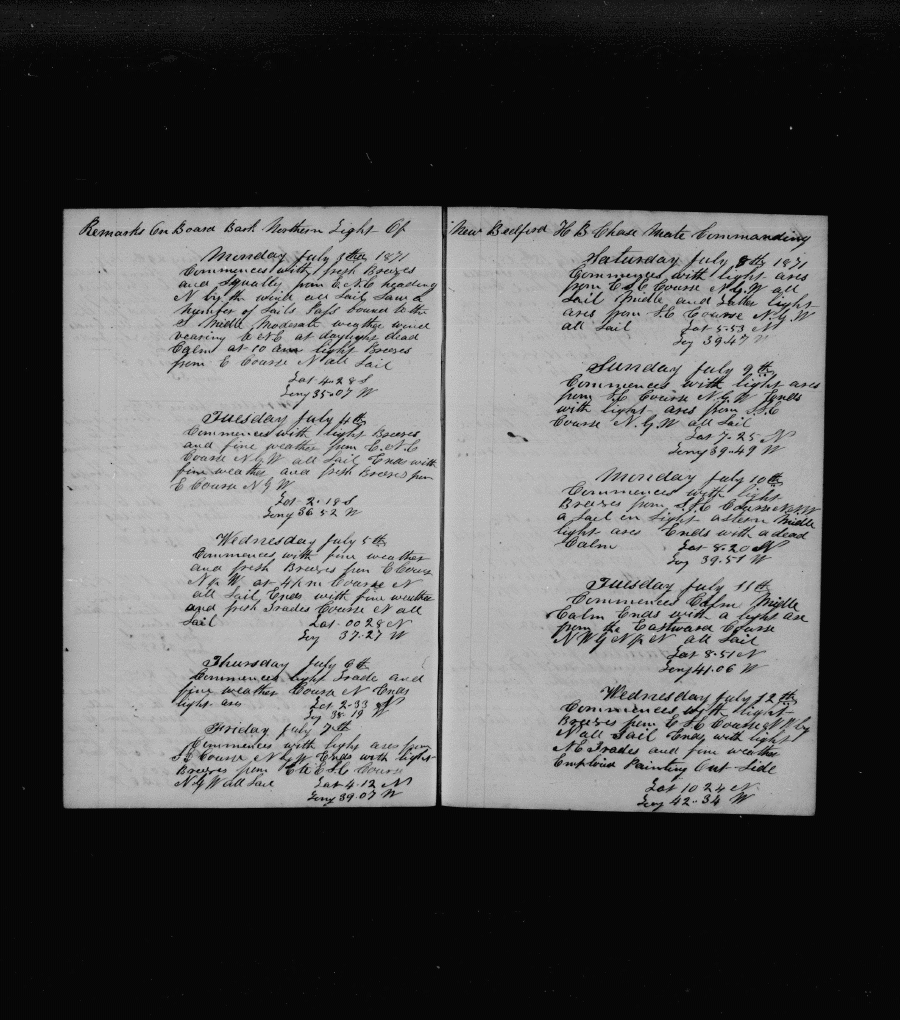 Remarks On Board Bark Northern Light Of
Monday July 3th 1871
Commences with fresh Breezes
and Squally from E.N.E heading
N by the wind all Sail Saw a
number of Sails Pass bound to the
S Middle Moderate weather wind
vearing to NE at daylight dead
Calm at 10 am light Breezes
from E Course N all Sail
Lat 4.28 S
Long 35.07 W
Tuesday July 4th
Commences with light Breezes
and fine weather from E.N.E
Course N.&W all Sail Ends with
fine weather and fresh Breezes from
E Course N&W
Lat 2.18 S
Long 36 52 W
Wednesday July 5th
Commences with fine weather
and fresh Breezes from E Course
N & W at 4 P m Course N
all Sail Ends with fine weather
and fresh Trades Course N all
Sail Lat 00 28 N
Long 37.27 W
Thursday July 6th
Commences light Trade and
fine weather Course N Ends
light ars Lat 2.33 N
Long 38.19 W
Friday July 7th
Commences with light ares from
S.E Course N & W Ends with light
Breezes from E to E.S.E Course
N.&W all Sail Lat 4.12 N
Long 39.07 W
New Bedford H B Chase Mate Commanding
Saturday July 8th 1871
Commences with light ares
from E.S.E Course N.&.W all
Sail Middle and Latter light
ares from S.E Course N.&.W
all Sail Lat 5.53 N
Long 39 47 W
Sunday July 9th
Commences with light ares
from S.E Course N.&.W Ends
with light ares from S.S.E
Course N.&.W all Sail
Lat 7.25 N
Long 39.49 W
Monday July 10th
Commences with light
Breezes from S.S.E Course N.&.W
a Sail in Sight astern Middle
light ares Ends with a dead
Calm Lat 8.20 N
Long 39.51 W
Tuesday July 11th
Commences Calm Middle
Calm Ends with a light are
from the Eastward Course
N W all Sail
Lat 8.51 N
Long 41.06 W
Wednesday July 12th
Commences with light
Breezes from E.S.E Course N.W by
N all Sail Ends with light
N.E Trades and fine weather
Emploid Painting Out Side
Lat 10 24 N
Long 42.34 W